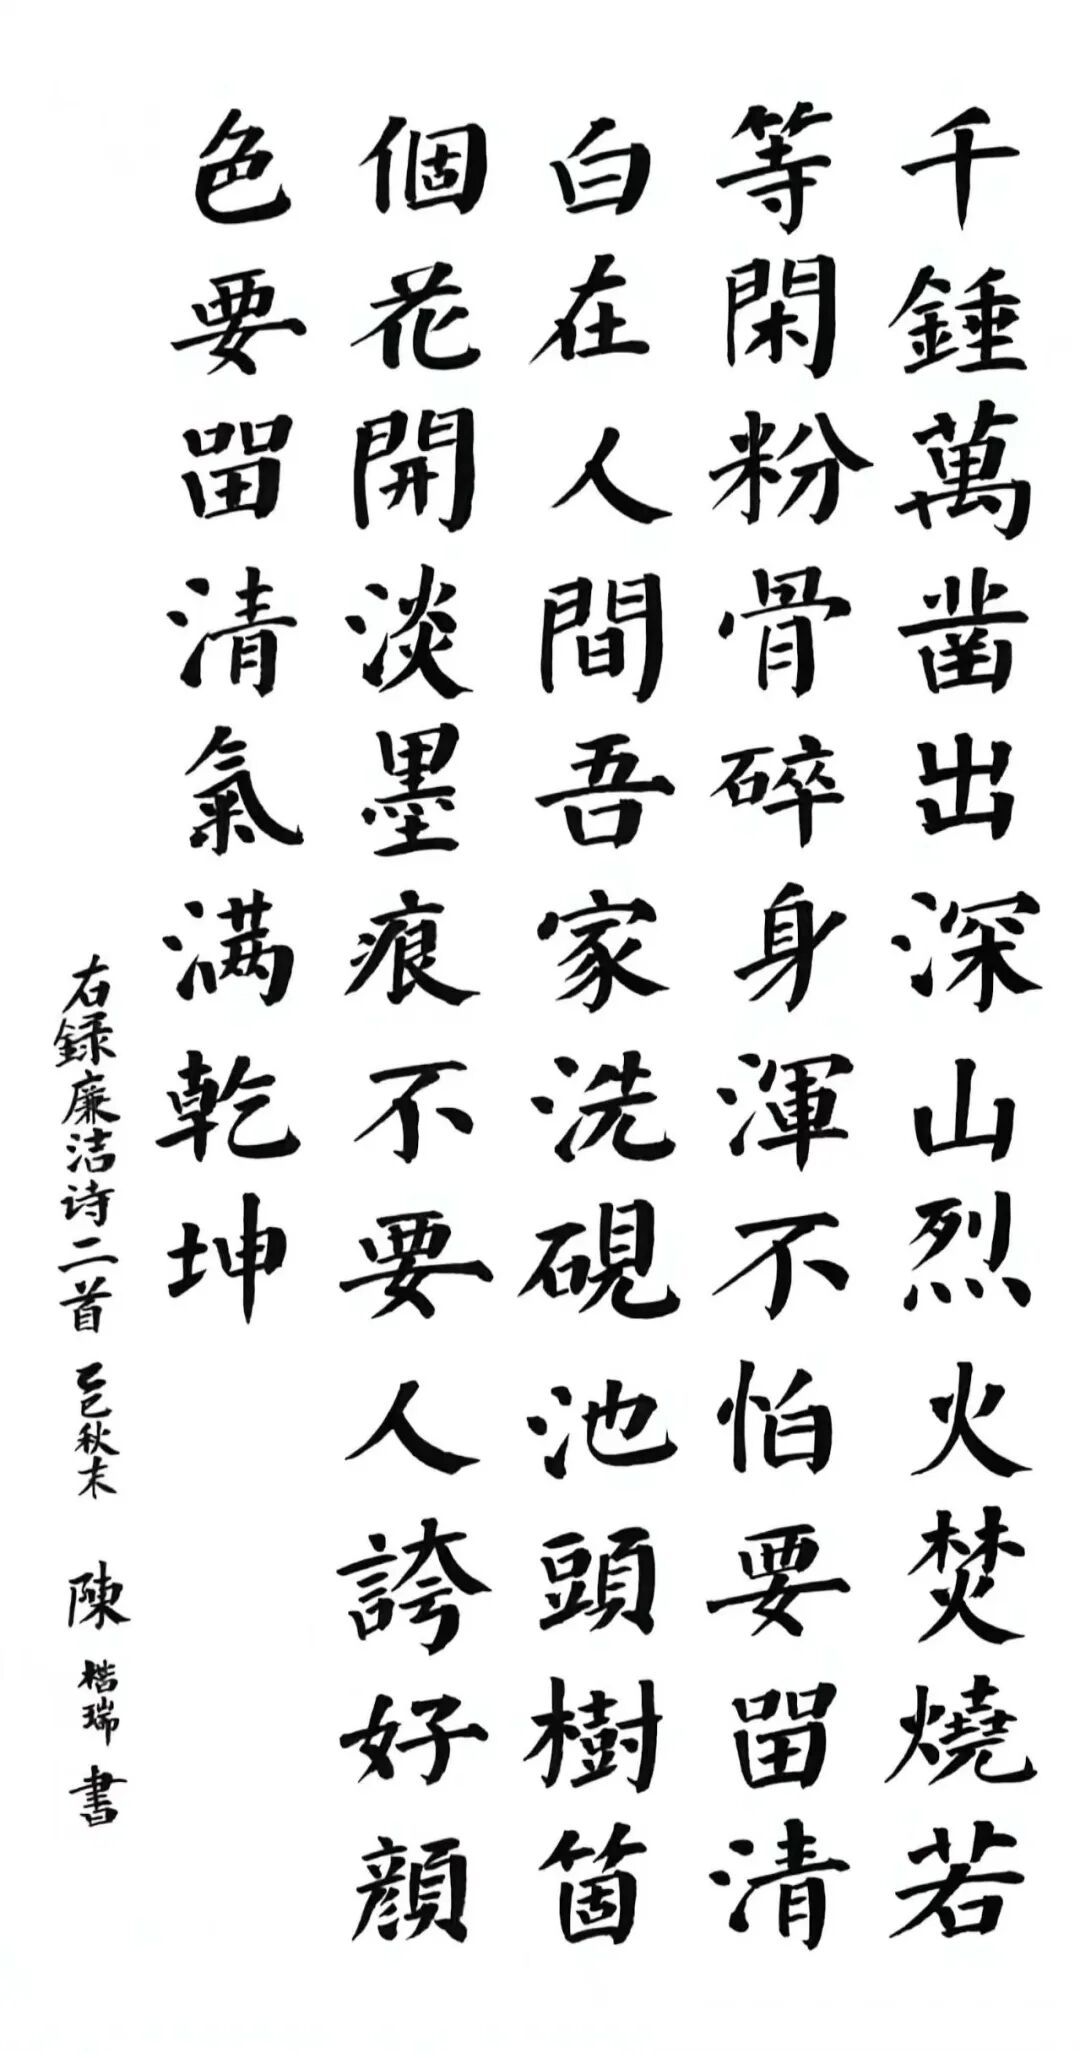 千錘萬凿出深山烈火焚燒若
等閑粉骨碎身渾不怕要畱清
白在人間吾家洗硯池頭樹箇
個花開淡墨痕不要人誇好顔
色要畱清氣满乾坤
右録廉洁诗二首 乙巳秋末 陳楷瑞書